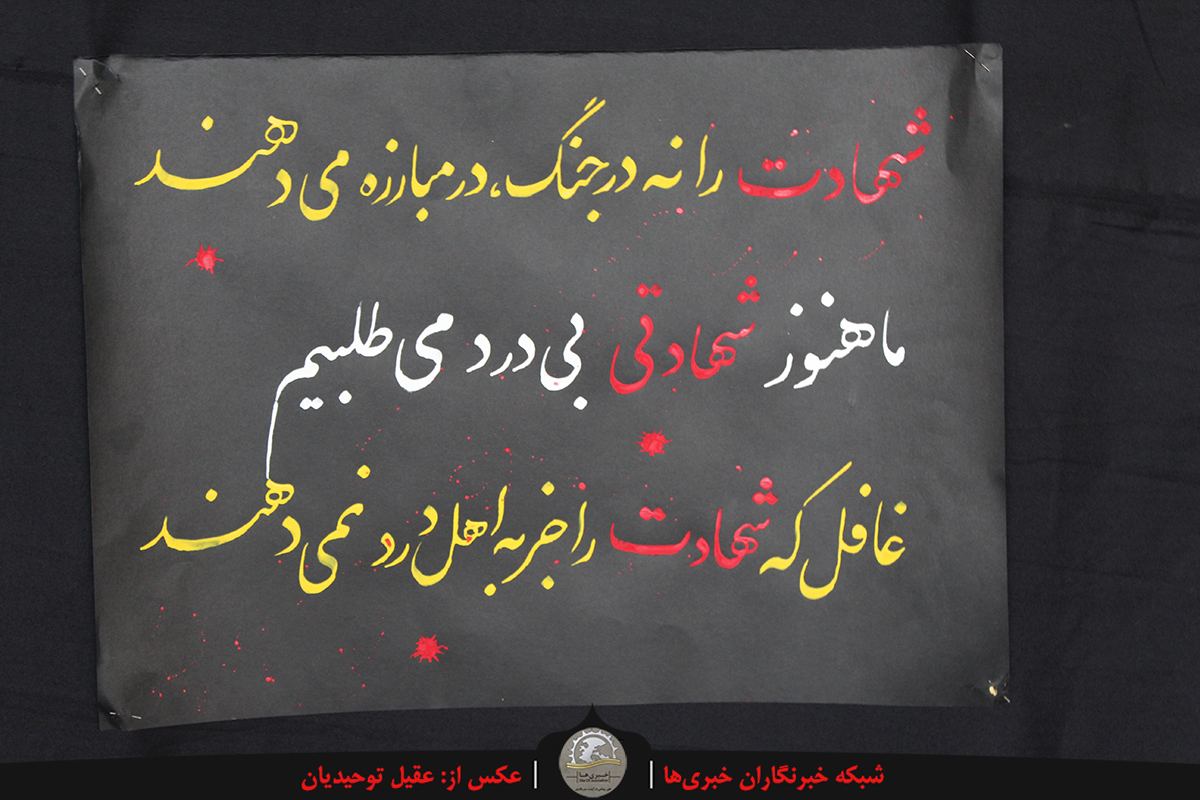 شهادت را نه در جنگ، در مبارزه می دهند
ما هنوز شهادتی بی درد می طلبیم
غافل که شهادت را جز به اهل درد نمی دهند
شبکه خبرنگاران خبری‌ها | خبری‌ها | عکس از: عقیل توحیدیان